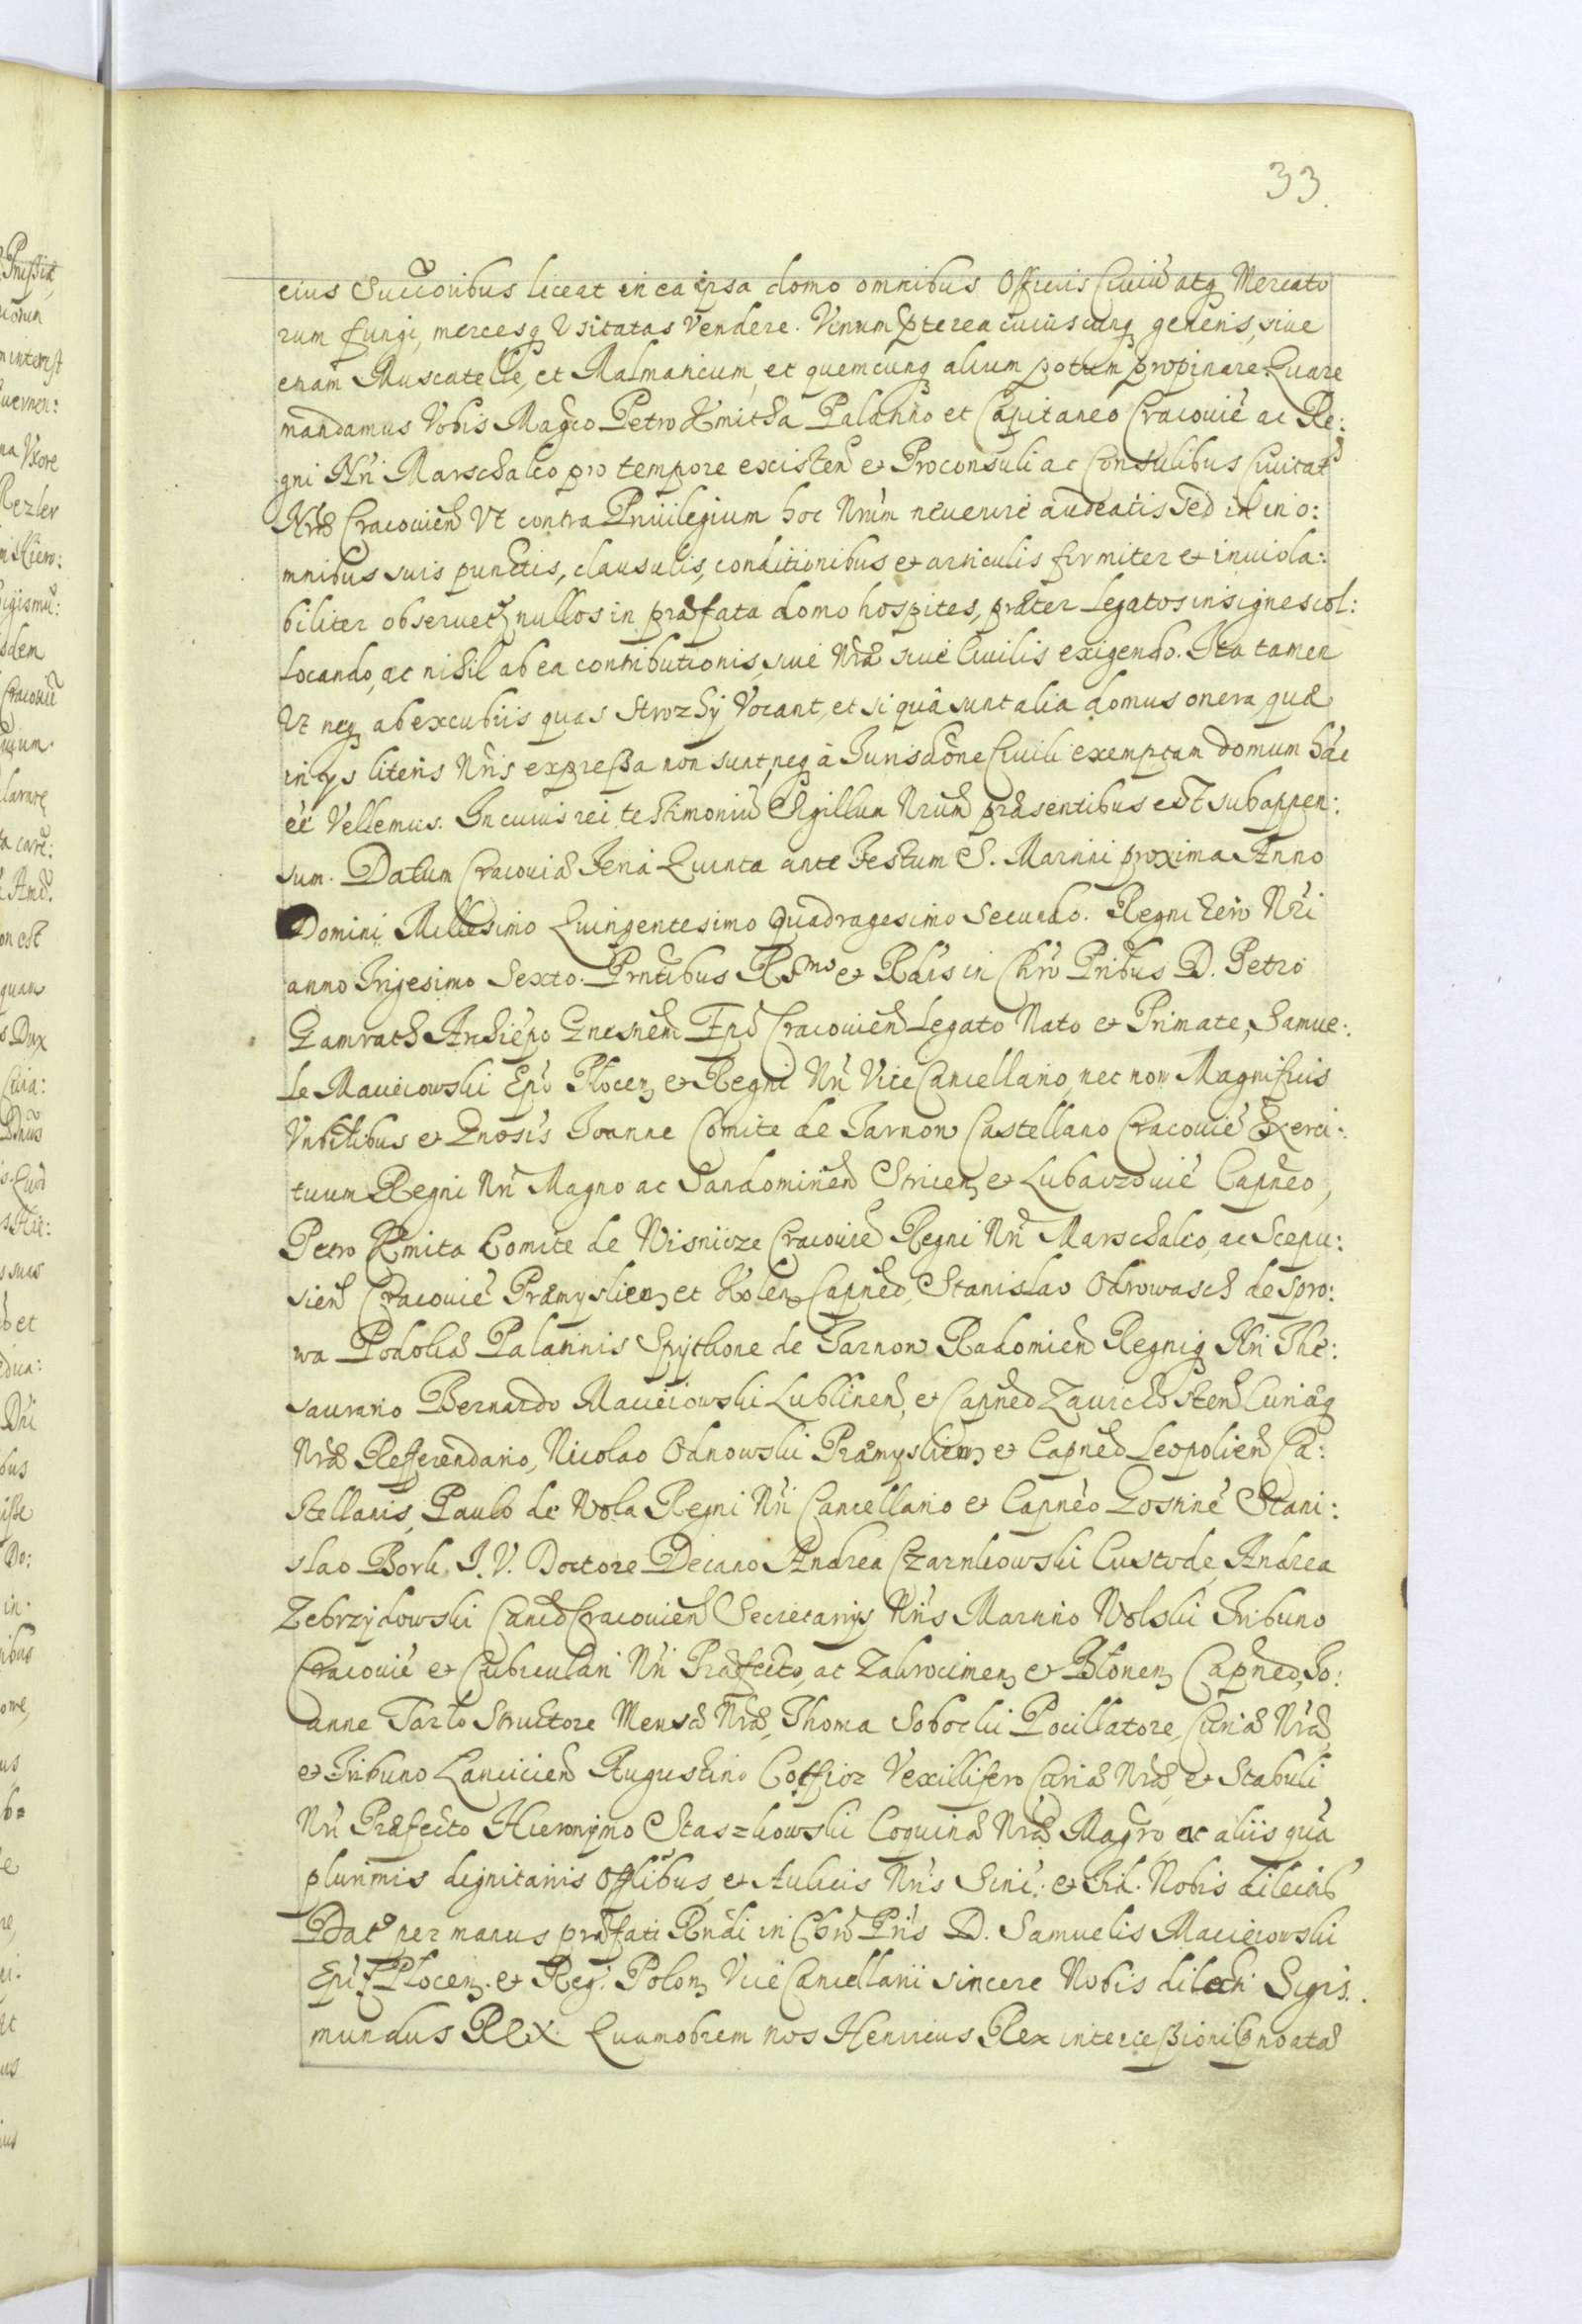 33.
eius Succōribus liceat in ea ipsa domo omnibus Officiis Civiū atq Mercato
rum fungi, mercesq Usitatas Vendere. Vinum pterea cuiuscunq generis, siue
etiam Muscatelle, et Malmaticum, et quemcunq alium potum propinare. Quare
mandamus Vobis Magco Petro Kmitha Palatino et Capitaneo Cracouie ac Re:
gni Nri Marschalco pro tempore existen et Proconsuli ac Consulibus Ciuitat
Nræ Cracouien Vt contra Priuilegium hoc Nrum neuenire audeatis Sed id in o:
mnibus suis punctis, clausulis, conditionibus et articulis firmiter et inuiola:
biliter obseruet, nullos in præfata domo hospites, præter Legatos insignes col:
locando, ac nihil ab ea contributionis, siue Nræ siue Ciuilis exigendo. Ita tamen
Vt neq ab excubiis quas Strozhÿ Vocant, et si quæ sunt alia domus onera quæ
in ÿs literis Nris expressa non sunt, neq à Jurisdone Ciuili exemptam domum hāc
eē Vellemus. In cuius rei testimoniū Sigillum Nrum præsentibus est subappen:
sum. Datum Cracouiæ Feria Quinta ante Festum S. Martini proxima Anno
Domini Millesimo Quingentesimo Quadragesimo Secundo. Regni Vero Nri
anno Trigesimo Sexto. Prntibus Rsmo et Rdis in Chro Pribus D. Petro
Gamrath Archiepo Gnesnen Epo Cracouien Legato Nato et Primate, Samue:
le Maciejowski Epo Plocen et Regni Nri Vice Cancellario, nec non Magnificis
Vnbilibus et Gnosis Joanne Comite de Tarnow Castellano Cracouie Exerci:
tuum Regni Nri Magno ac Sandomirien Stricen et Lubaczouie Capneo,
Petro Kmita Comite de Wisnicze Cracouie Regni Nri Marschalco, ac Scepu:
sien Cracouie Præmyslien et Kolen Capneo, Stanislao Odrowasch de Spro:
wa Podoliæ Palatinis Spÿthone de Tarnow Radomien Regniq Nri The:
saurario Bernardo Maciejowski Lublinen, et Capneo Zawichosten Curiæq
Nræ Refferendario, Nicolao Odnowski Præmyslien et Capneo Leopolien Ca:
stellanis, Paulo de Wola Regni Nri Cancellario et Capneo Gostine Stani:
slao Bork J. V. Doctore Decano Andrea Czarnkowski Custode, Andrea
Zebrzÿdowski Canco Cracouien Secretarÿs Nris Martino Wolski Tribuno
Cracouie et Cubiculari Nri Præfecto, ac Zakrocimen et Błonen Capneo, Jo:
anne Tarlo Structore Mensæ Nræ, Thoma Sobocki Pocillatore Curiæ Nræ
et Tribuno Lancicien Augustino Cotficz Vexillifero Curiæ Nræ et Stabuli
Nri Præfecto Hieronÿmo Staszkowski Coquinæ Nræ Magro et aliis quā
plurimis dignitariis Offlibus et Aulicis Nris Sinc: et Fid. Nobis dilectis
Dat per manus præfati Rndi in Chro Pris D. Samuelis Maciejowski
Epi Plocen. et Reg. Polon Vice Cancellarii sincere Nobis dilecti Sigis.
mundus REX. Quamobrem nos Henricus Rex intercessionib noatæ